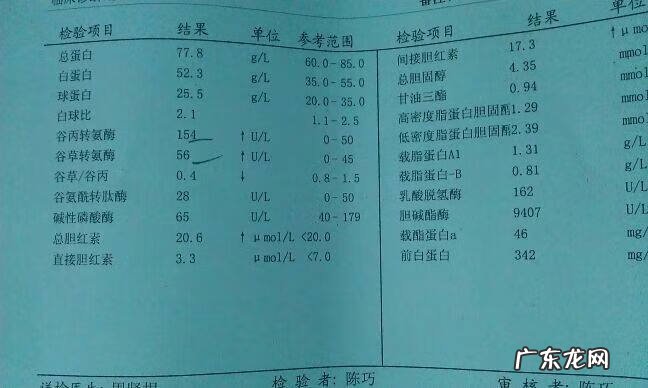 检验项目 结果 单位 参考范围
总蛋白 77.8 g/L 60.0-85.0
白蛋白 52.3 g/L 35.0-55.0
球蛋白 25.5 g/L 20.0-35.0
白球比 2.1 1.1-2.5
谷丙转氨酶 154 ↑ U/L 0-50
谷草转氨酶 56 ↑ U/L 0-45
谷草/谷丙 0.4 ↓ 0.8-1.5
谷氨酰转肽酶 28 U/L 0-50
碱性磷酸酶 65 U/L 40-179
总胆红素 20.6 ↑ μmol/L <20.0
直接胆红素 3.3 μmol/L <7.0
检验项目 结果 单位
间接胆红素 17.3 ↑μmo
总胆固醇 4.35 mmol
甘油三酯 0.94 mmol
高密度脂蛋白胆固醇1.29 mmo
低密度脂蛋白胆固醇2.39 mmo
载脂蛋白A1 1.31 g/L
载脂蛋白-B 0.81 g/L
乳酸脱氢酶 162 U/L
胆碱酯酶 9407 U/L
载脂蛋白a 46 mg/
前白蛋白 342 mg/
检 验 者:陈巧
审 核 者:陈巧
广东龙网